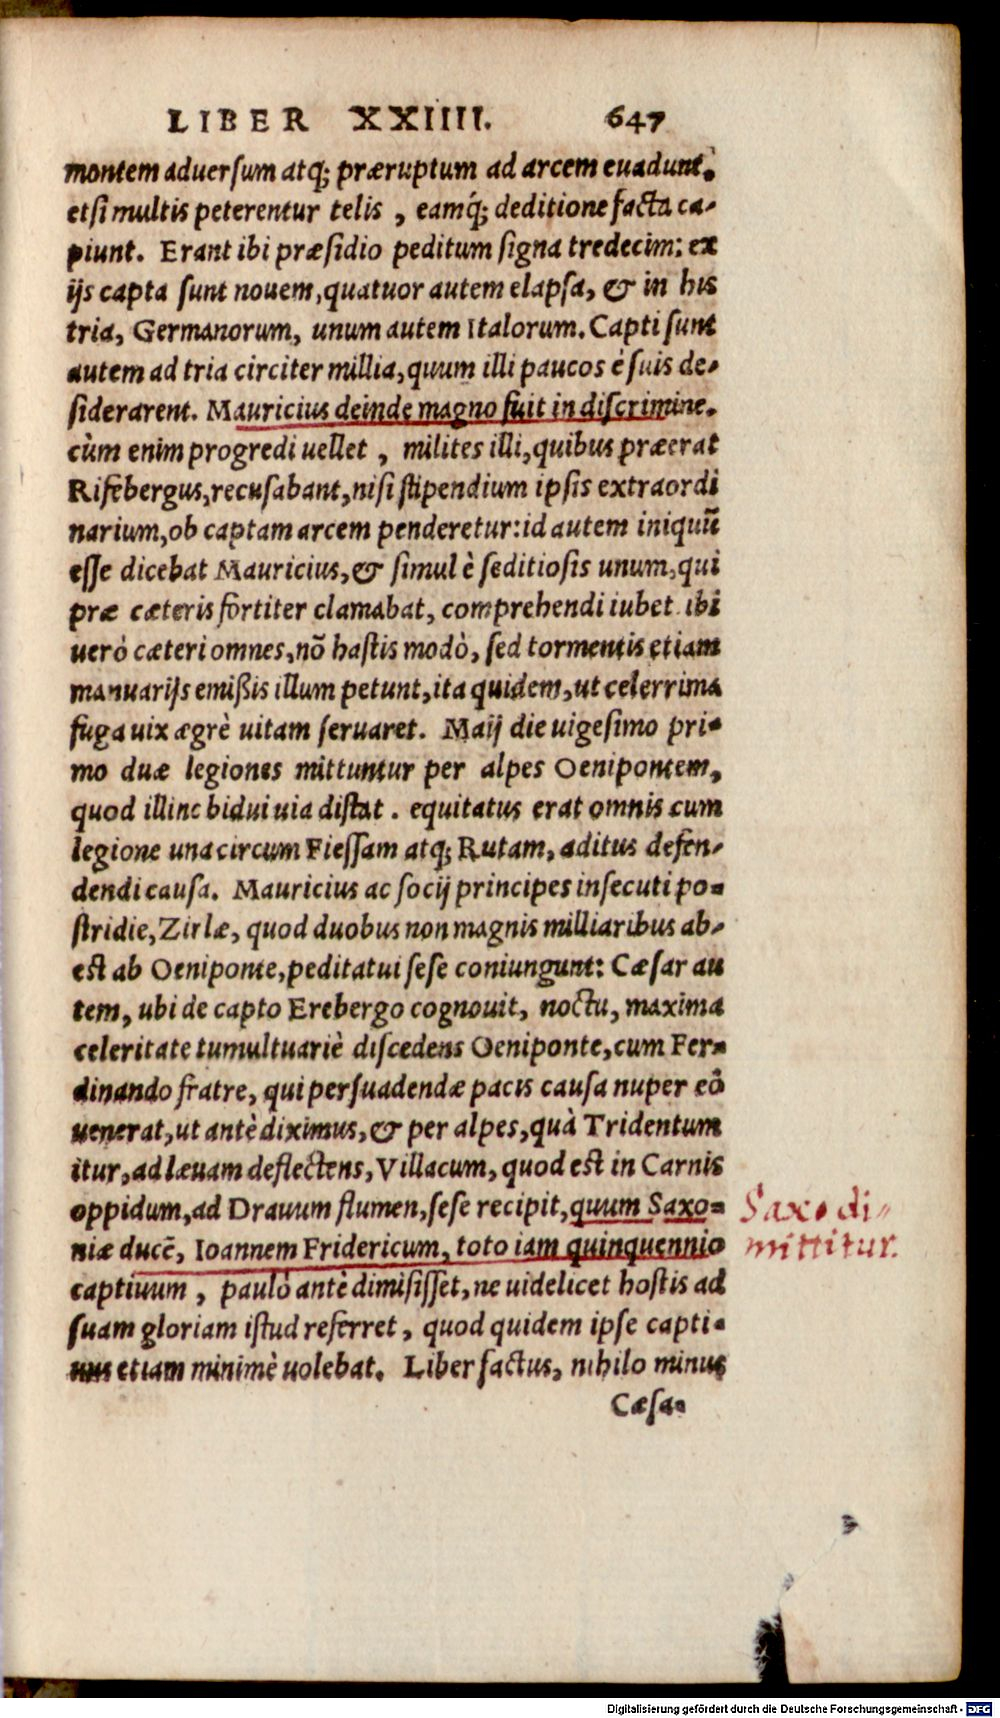 LIBER XXIIII. 647
montem aduersum atq; præruptum ad arcem euadunt,
etsi multis peterentur telis, eamq́; deditione facta ca-
piunt. Erant ibi præsidio peditum signa tredecim: ex
ijs capta sunt nouem, quatuor autem elapsa, & in his
tria, Germanorum, unum autem Italorum. Capti sunt
autem ad tria circiter millia, quum illi paucos è suis de-
siderarent. Mauricius deinde magno fuit in discrimine.
cùm enim progredi uellet, milites illi, quibus præerat
Rifebergus, recusabant, nisi stipendium ipsis extraordi
narium, ob captam arcem penderetur: id autem iniquũ
esse dicebat Mauricius, & simul è seditiosis unum, qui
præ cæteris fortiter clamabat, comprehendi iubet. ibi
uerò cæteri omnes, nõ hastis modò, sed tormentis etiam
manuarijs emißis illum petunt, ita quidem, ut celerrima
fuga uix ægrè uitam seruaret. Maij die uigesimo pri-
mo duæ legiones mittuntur per alpes Oenipontem,
quod illinc bidui uia distat. equitatus erat omnis cum
legione una circum Fiessam atq; Rutam, aditus defen-
dendi causa. Mauricius ac socij principes insecuti po-
stridie, Zirlæ, quod duobus non magnis milliaribus ab-
est ab Oeniponte, peditatui sese coniungunt: Cæsar au
tem, ubi de capto Erebergo cognouit, noctu, maxima
celeritate tumultuariè discedens Oeniponte, cum Fer-
dinando fratre, qui persuadendæ pacis causa nuper eò
uenerat, ut antè diximus, & per alpes, quà Tridentum
itur, ad læuam deflectens, Villacum, quod est in Carnis
oppidum, ad Drauum flumen, sese recipit, quum Saxo-
niæ ducẽ, Ioannem Fridericum, toto iam quinquennio
captiuum, paulò antè dimisisset, ne uidelicet hostis ad
suam gloriam istud referret, quod quidem ipse capti-
uus etiam minimè uolebat. Liber factus, nihilo minus
Cæsa-
Saxo di-
mittitur.
Digitalisierung gefördert durch die Deutsche Forschungsgemeinschaft - DFG